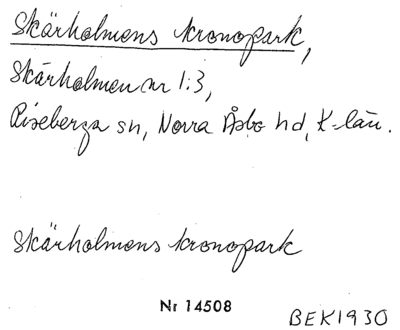 Skärholmens kronopark,
Skärholmen nr 1:3,
Riseberga sn, Norra Åsbo hd, K-län.
Skärholmens kronopark
Nr 14508
BEK1930